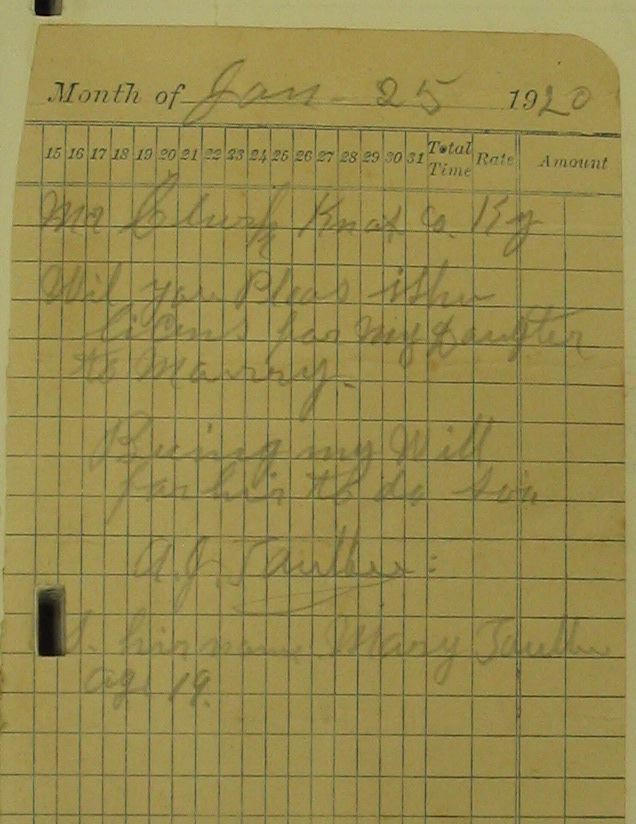 Month of Jan - 25 1920
15 16 17 18 19 20 21 22 23 24 25 26 27 28 29 30 31 Total Time Rate Amount
Mr Clurk Knot Co. Ky
Wil you Pleas ishu
licens for My Daughter
to Marry.
Being my Will
for hir to do son
A. J.
S. hir name Mary
age 19.